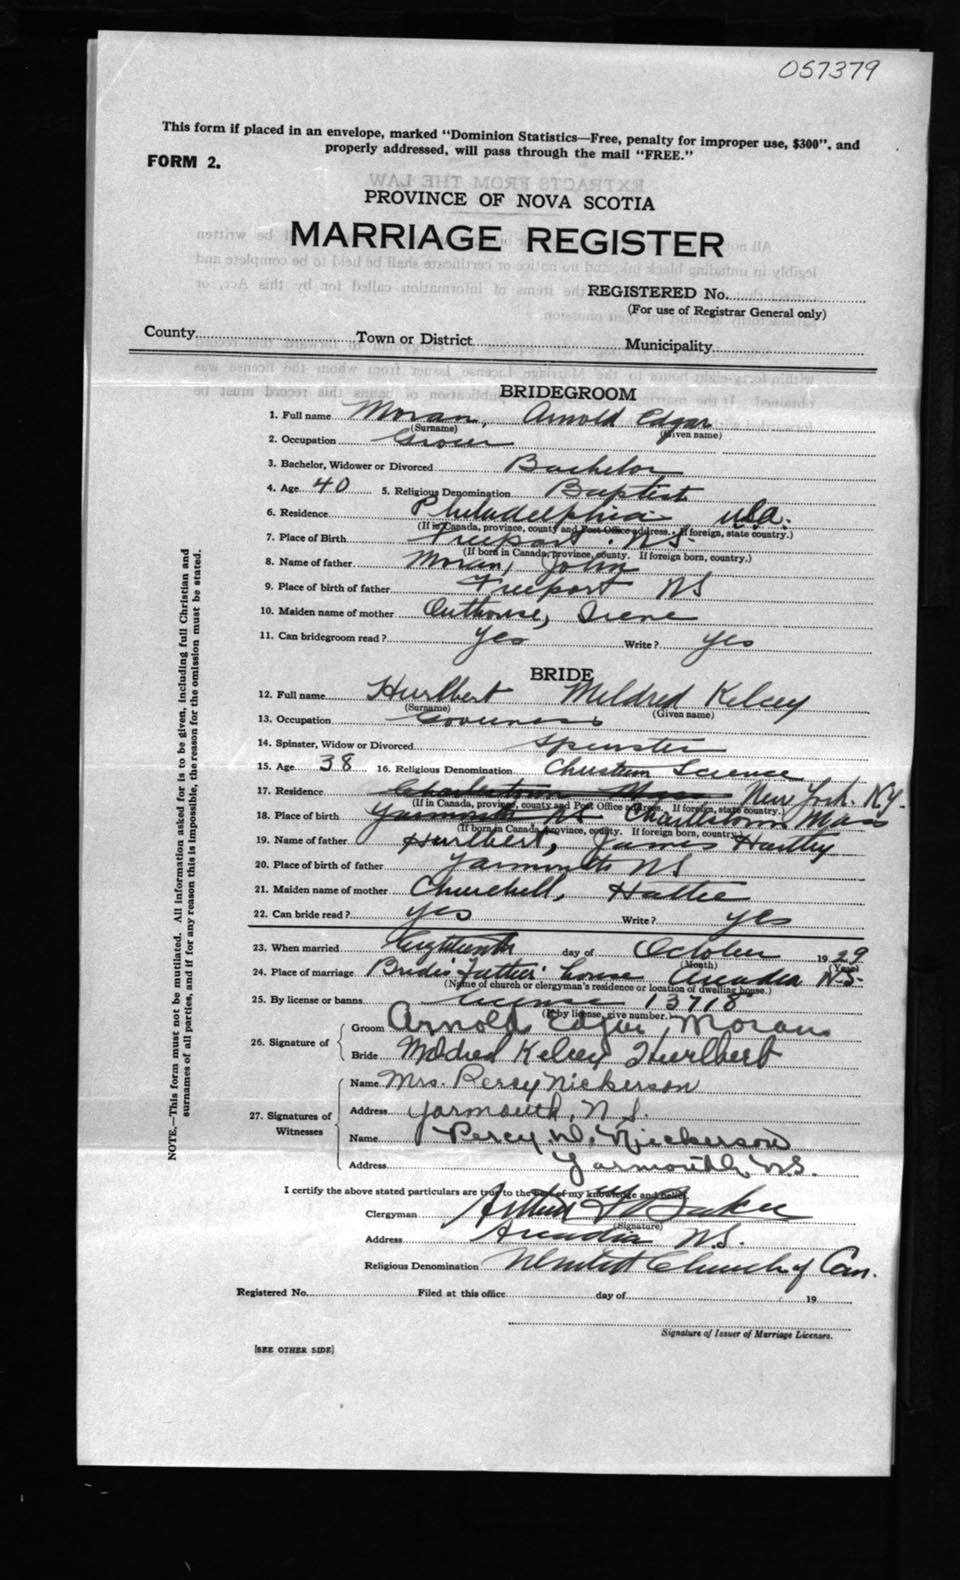 057379
This form if placed in an envelope, marked "Dominion Statistics—Free, penalty for improper use, $300", and
properly addressed, will pass through the mail "FREE."
FORM 2.
PROVINCE OF NOVA SCOTIA
MARRIAGE REGISTER
REGISTERED No.
(For use of Registrar General only)
County Town or District Municipality
BRIDEGROOM
1. Full name Moran, Arnold Edgar
(Surname) (Given name)
2. Occupation Grocer
3. Bachelor, Widower or Divorced Bachelor
4. Age 40 5. Religious Denomination Baptist
6. Residence Philadelphia U.S.A.
(If in Canada, province, county and Post Office address. If foreign, state country.)
7. Place of Birth Freeport N.S.
(If born in Canada, province, county. If foreign born, country.)
8. Name of father Moran, John
9. Place of birth of father Freeport NS
10. Maiden name of mother Outhouse, Irene
11. Can bridegroom read? Yes Write? Yes
BRIDE
12. Full name Hurlbert Mildred Kelsey
(Surname) (Given name)
13. Occupation Governess
14. Spinster, Widow or Divorced Spinster
15. Age 38 16. Religious Denomination Christian Science
17. Residence Charlestown Mass New York. N.Y.
(If in Canada, province, county and Post Office address. If foreign, state country.)
18. Place of birth Yarmouth NS Charlestown Mass
(If born in Canada, province, county. If foreign born, country)
19. Name of father Hurlbert, James Hartley
20. Place of birth of father Yarmouth NS
21. Maiden name of mother Churchill, Hattie
22. Can bride read? yes Write? yes
23. When married Eighteenth day of October 1929
(Month) (Year)
24. Place of marriage Bride's Father's house Arcadia N.S.
(Name of church or clergyman's residence or location of dwelling house.)
25. By license or banns License 13718
(If by license, give number.)
26. Signature of
Groom Arnold Edgar Moran
Bride Mildred Kelsey Hurlbert
27. Signatures of Witnesses
Name Mrs. Percy Nickerson
Address Yarmouth, N.S.
Name Percy W. Nickerson
Address Yarmouth, N.S.
I certify the above stated particulars are true to the best of my knowledge and belief.
Clergyman Arthur Baker
(Signature)
Address Arcadia N.S.
Religious Denomination United Church of Can.
Registered No. Filed at this office day of 19
Signature of Issuer of Marriage Licenses.
[SEE OTHER SIDE]
NOTE.—This form must not be mutilated. All information asked for is to be given, including full Christian and
surnames of all parties, and if for any reason this is impossible, the reason for the omission must be stated.